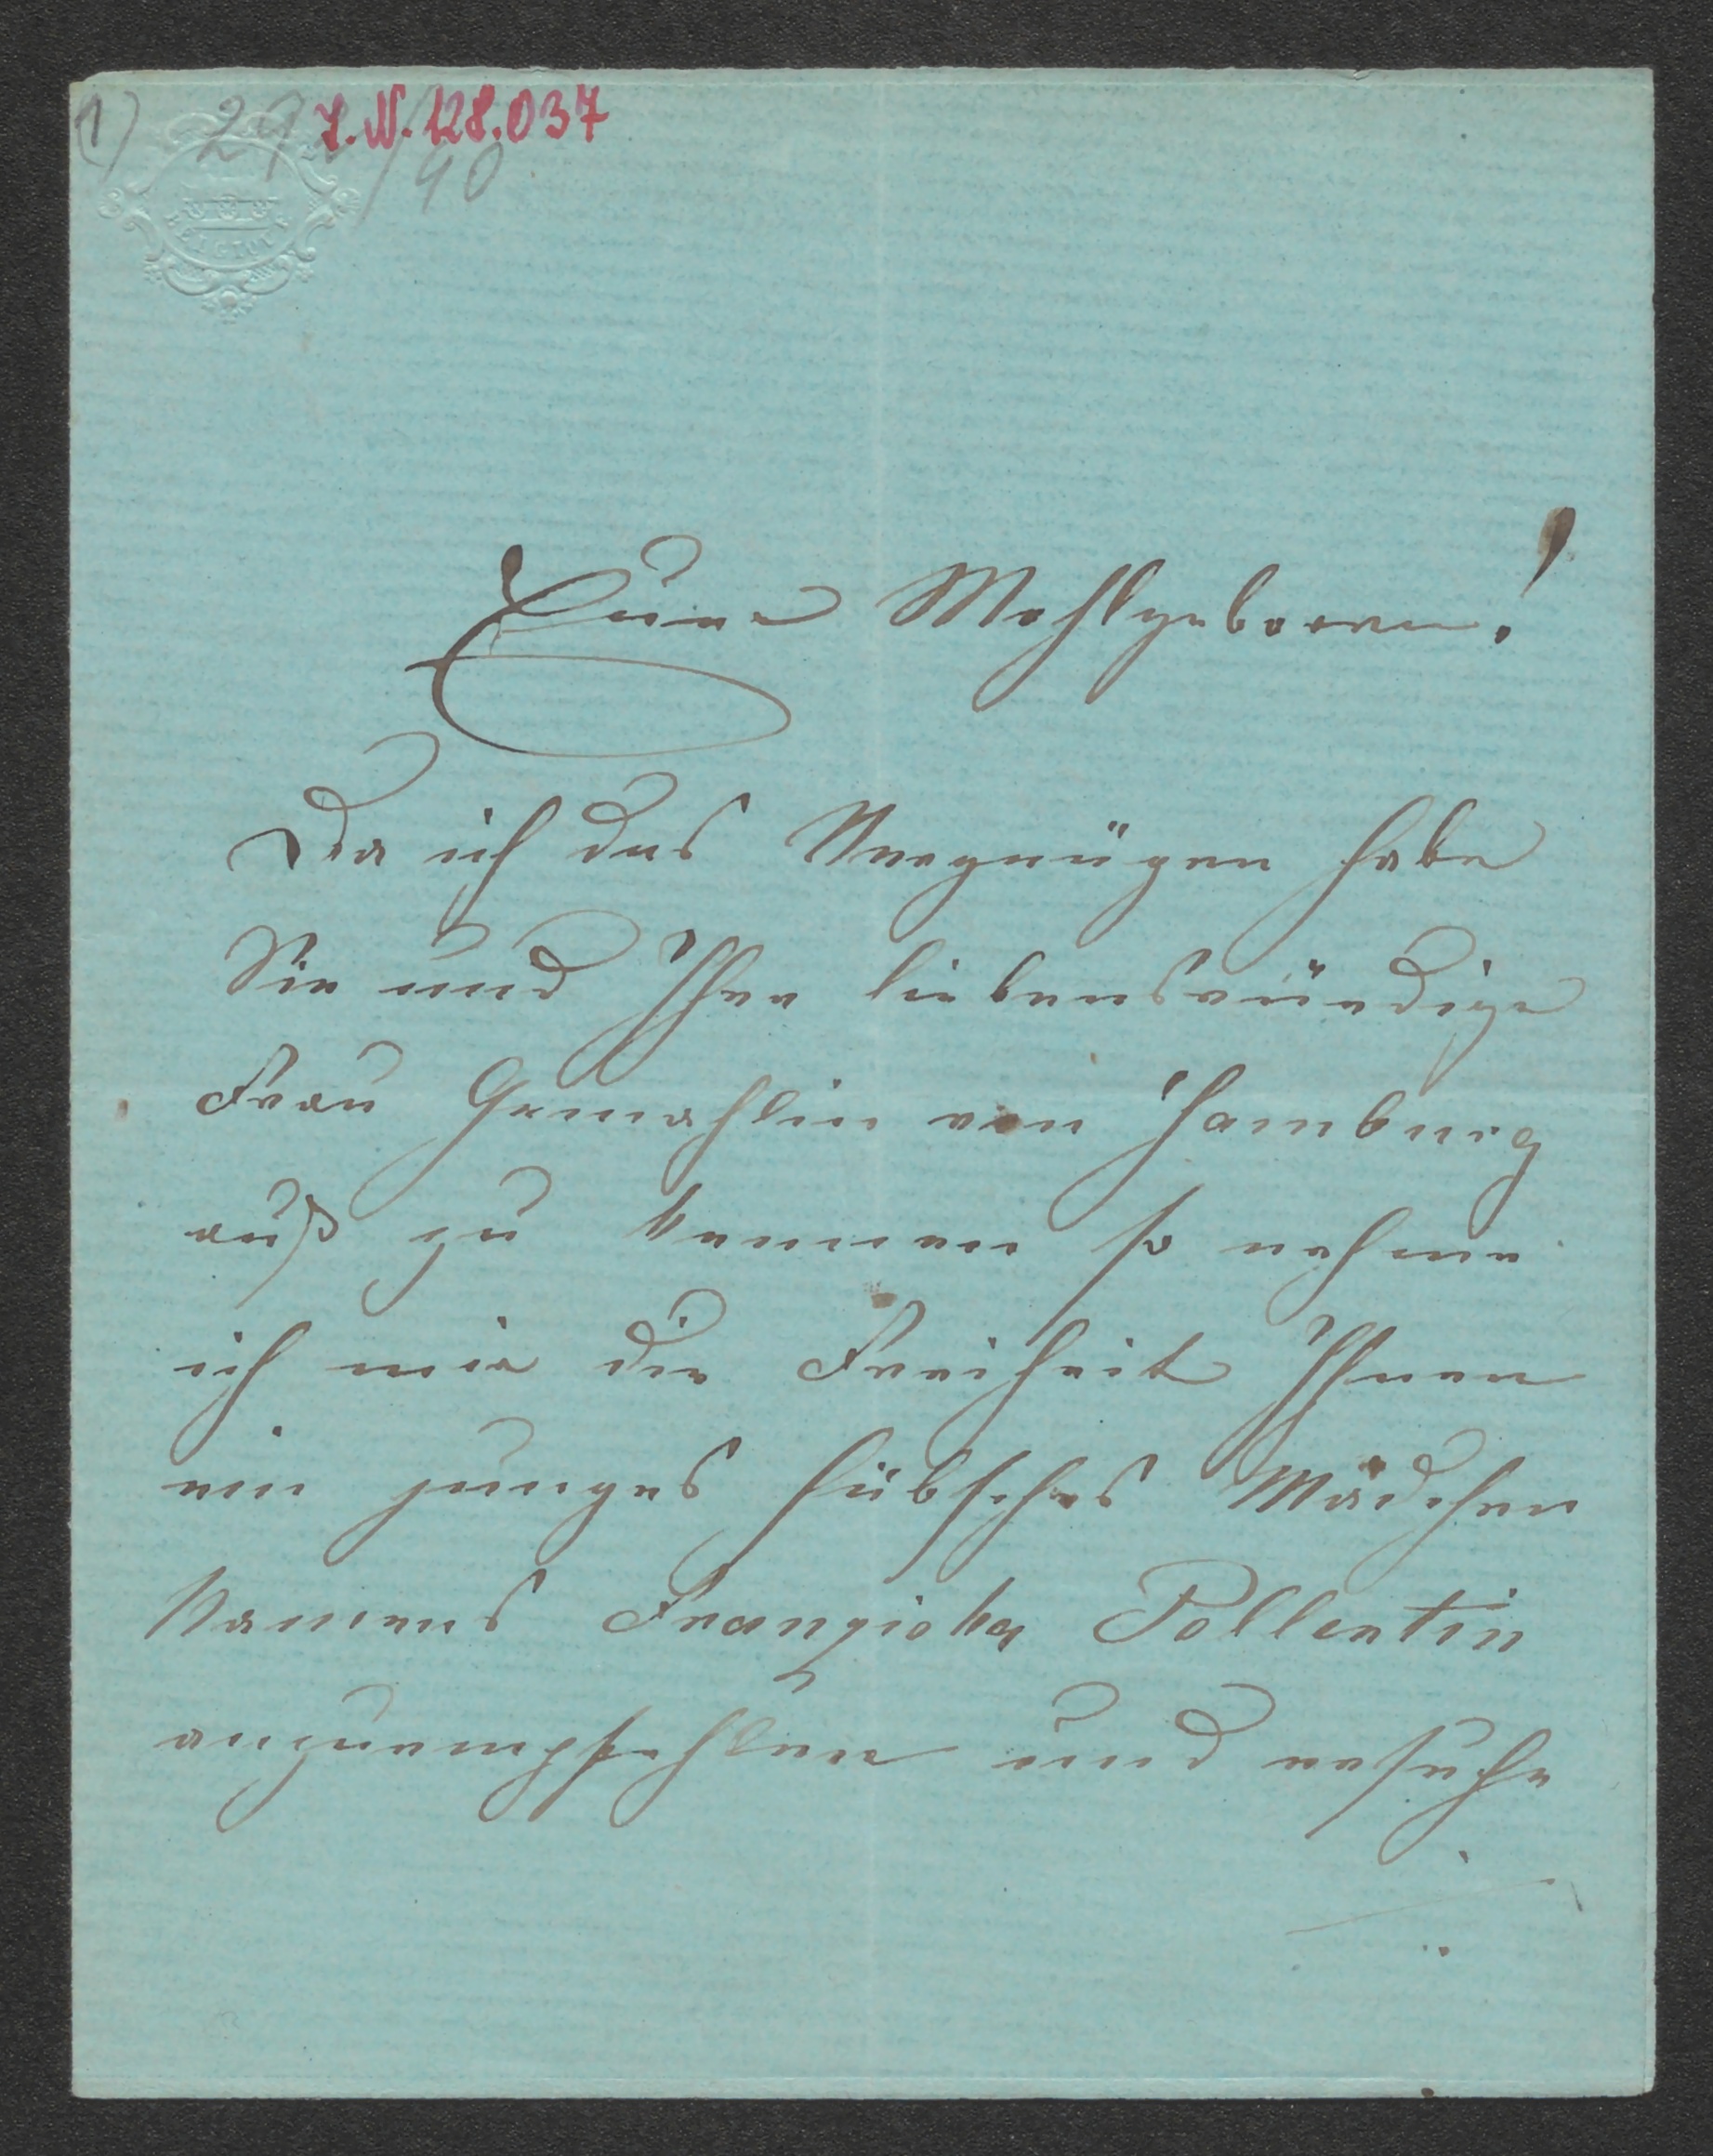 1)
I.N. 128.037
Euer Wohlgeboren!
Da ich das Vergnügen habe
Sie und Ihre liebenswürdige
Frau Gemahlin von Hamburg
auß zu kennen so nehme
ich mir die Freiheit Ihnen
ein junges hübsches Mädchen
Namens Franziska Pollentin
anzuempfehlen und ersuche